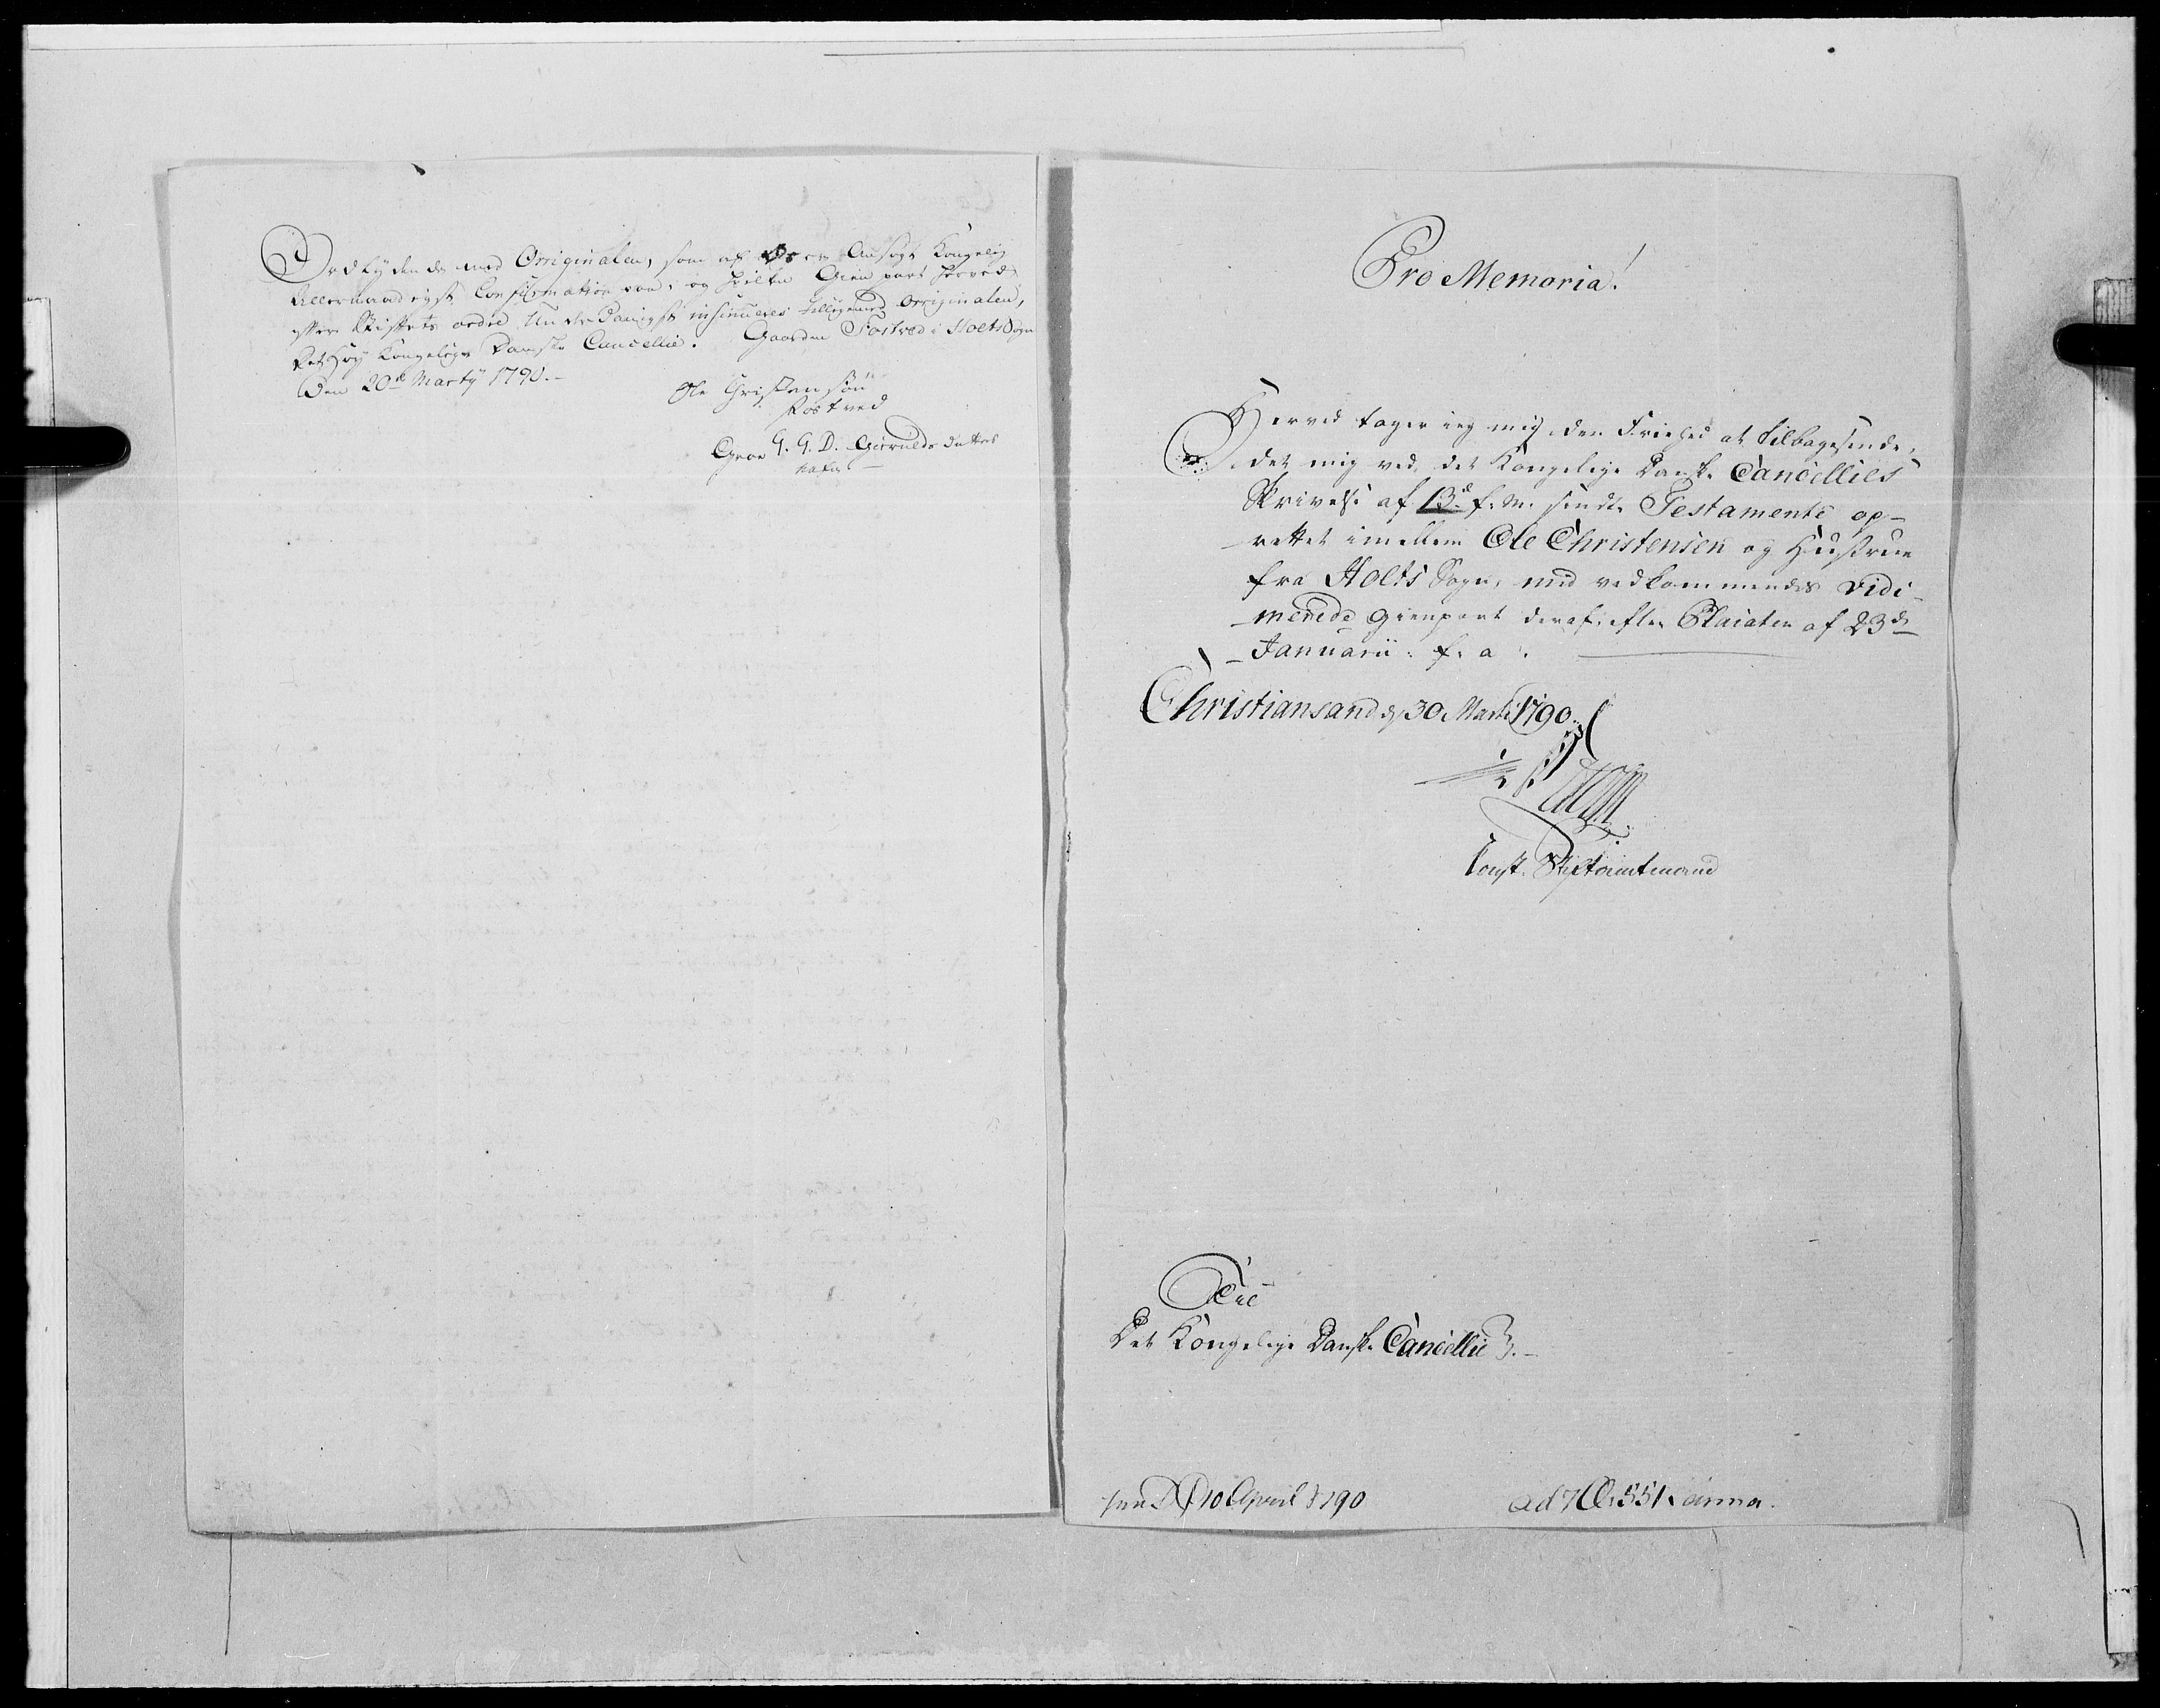 Ordlydende med Orriginalen, som af Os er Ansøgt Kongelig
Allernaadigst Confirmation paa, og hvilken Gienpart herved
efter Stiftets ordre Underdanigst insinueres tilligemed Orriginalen,
Det Høy Kongelige Danske Cancellie. Gaarden Fostved i Holts Sogn
Den 20de Marty 1790.
Ole Christensøn
Fostved
Groe G. G. D. Gierulds datter
Pro Memoria!
Herved tager ieg mig den Friehed at tilbagesende,
det mig ved det Kongelige Danske Cancellies
Skrivelse af 13de f. M. sendte Testamente op-
rettet imellem Ole Christensen og Hustrue
fra Holts Sogn, med vedkommendes vidi-
merede Gienpart deraf, efter Placaten af 23de
Januarii f. a.
Christiansand d. 30 Martii 1790.
Const. Stiftamtmand
Til
Det Kongelige Danske Cancellie.
10 April 1790 ad 551